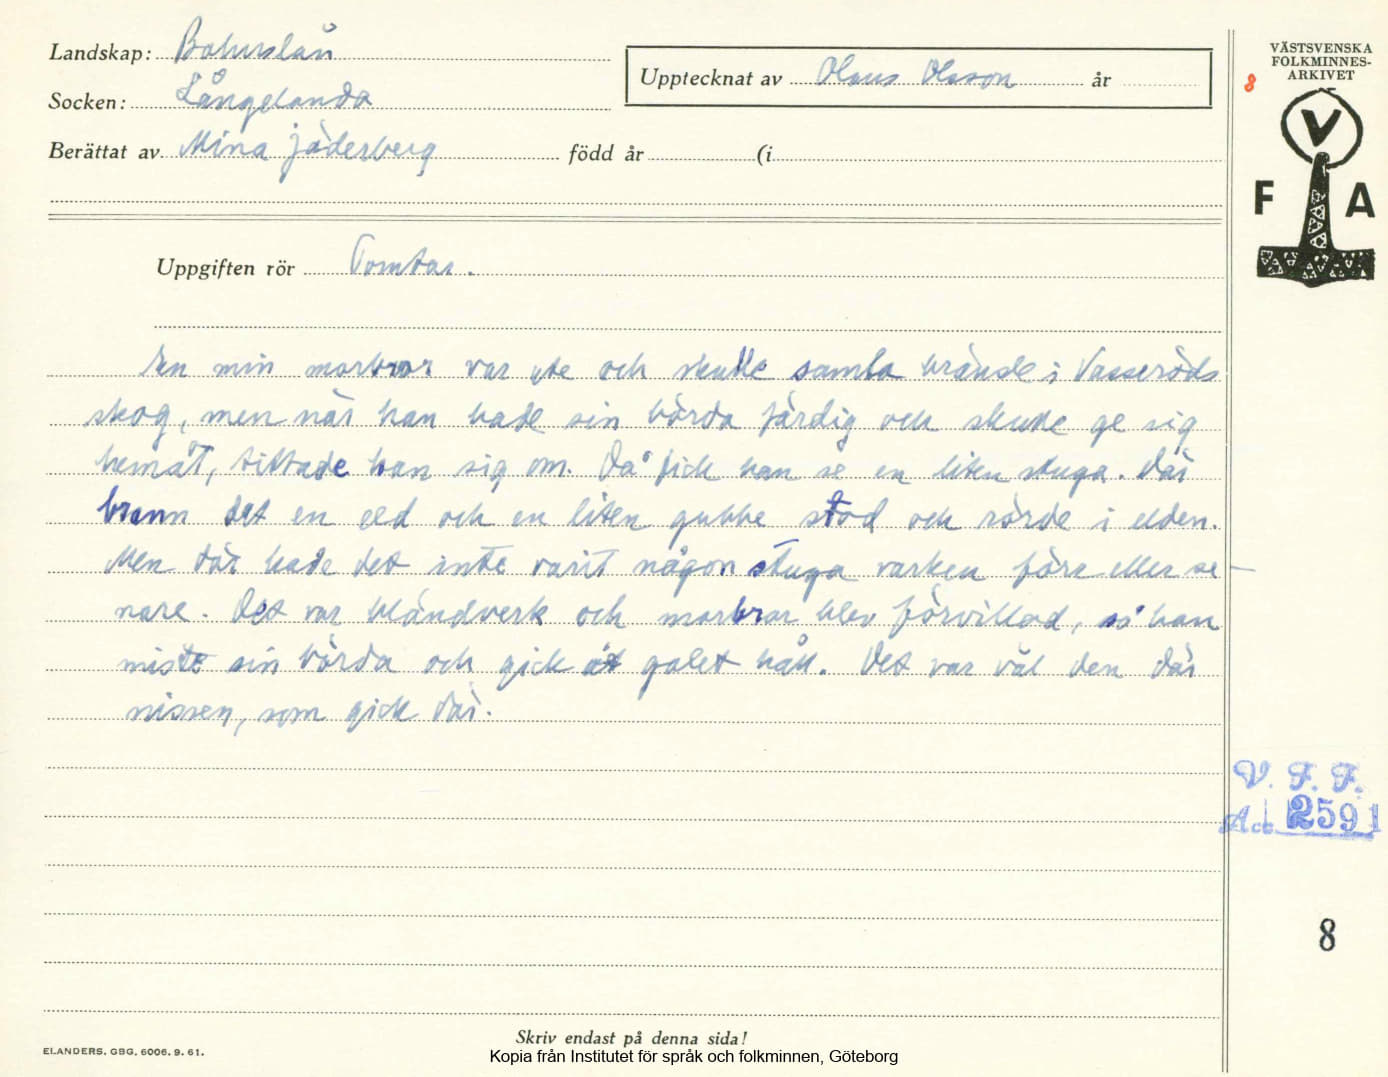 Landskap: Bohuslän
Socken: Långelanda
Berättat av Mina Jäderberg född år (i
Upptecknat av Olaus Olsson år
VÄSTSVENSKA
FOLKMINNES-
ARKIVET
8
V
F A
Uppgiften rör Tomtar.
En min morbror var ute och skulle samla bränsle i Vasseröds
skog, men när han hade sin börda färdig och skulle ge sig
hemåt, tittade han sig om. Då fick han se en liten stuga. Där
brann det en eld och en liten gubbe stod och rörde i elden.
Men där hade det inte varit någon stuga varken förr eller se
nare. Det var bländverk och morbror blev förvillad, så han
miste sin börda och gick åt galet håll. Det var väl den där
nissen, som gick där.
V. F. F.
Acc. 2591
8
Skriv endast på denna sida!
ELANDERS, GBG, 6006. 9. 61.
Kopia från Institutet för språk och folkminnen, Göteborg